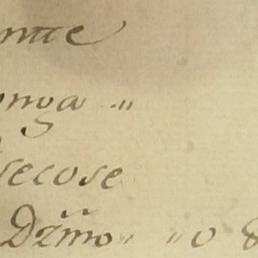 ntte
onga "
secose
Dz̃mo " " o 8